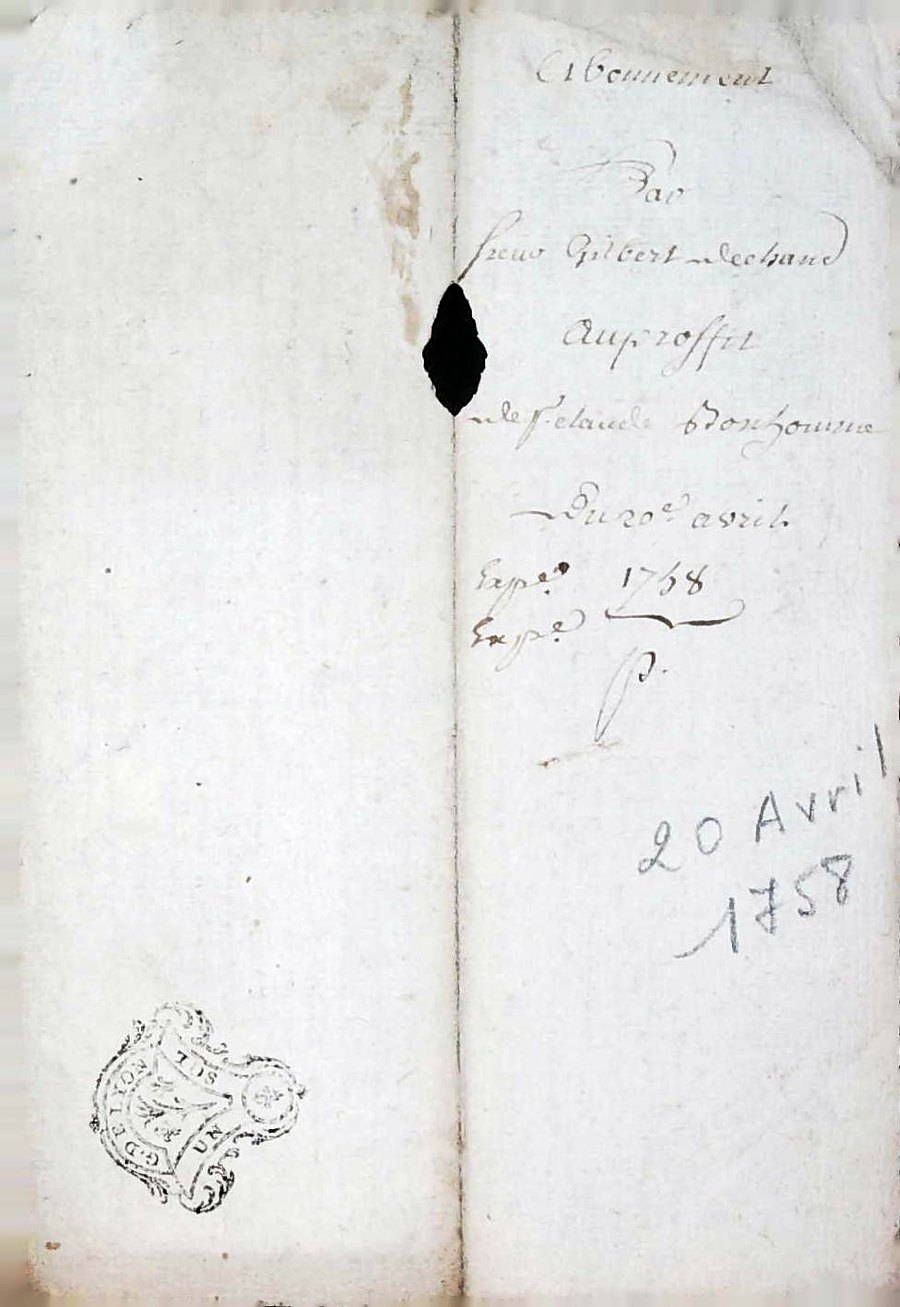 Abonnement
Par
sieur Gilbert dechand
Auproffit
de sr. claude Bonhomme
Du 20e. avril.
Expe.
1758
Expe.
p.
20 Avril
1758
G. DE LYON
UN SOL